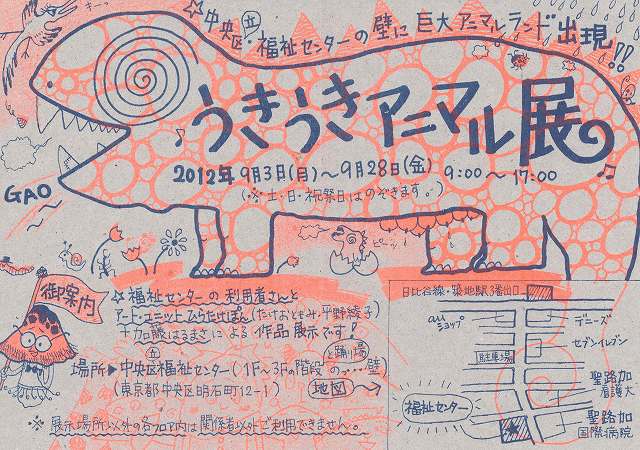 キー〜
☆中央区立・福祉センターの壁に巨大アニマルランド出現!!
うきうきアニマル展
2012年 9月3日(月)〜9月28日(金) 9:00〜17:00
(※土・日・祝祭日はのぞきます。)
GAO
ピーッ!
御案内
☆福祉センターの利用者さんと
アート・ユニットひらたけぽん(たけおともみ・平野綾子)
による作品展示です!
場所▶中央区立福祉センター(1F〜3Fの階段の…壁)
と踊り場
(東京都中央区明石町12-1)
地図
※展示場所以外の各フロア内は関係者以外ご利用できません。
日比谷線・築地駅3番出口
au
ショップ
デニーズ
セブンイレブン
駐車場
聖路加
看護大
福祉センター
聖路加
国際病院